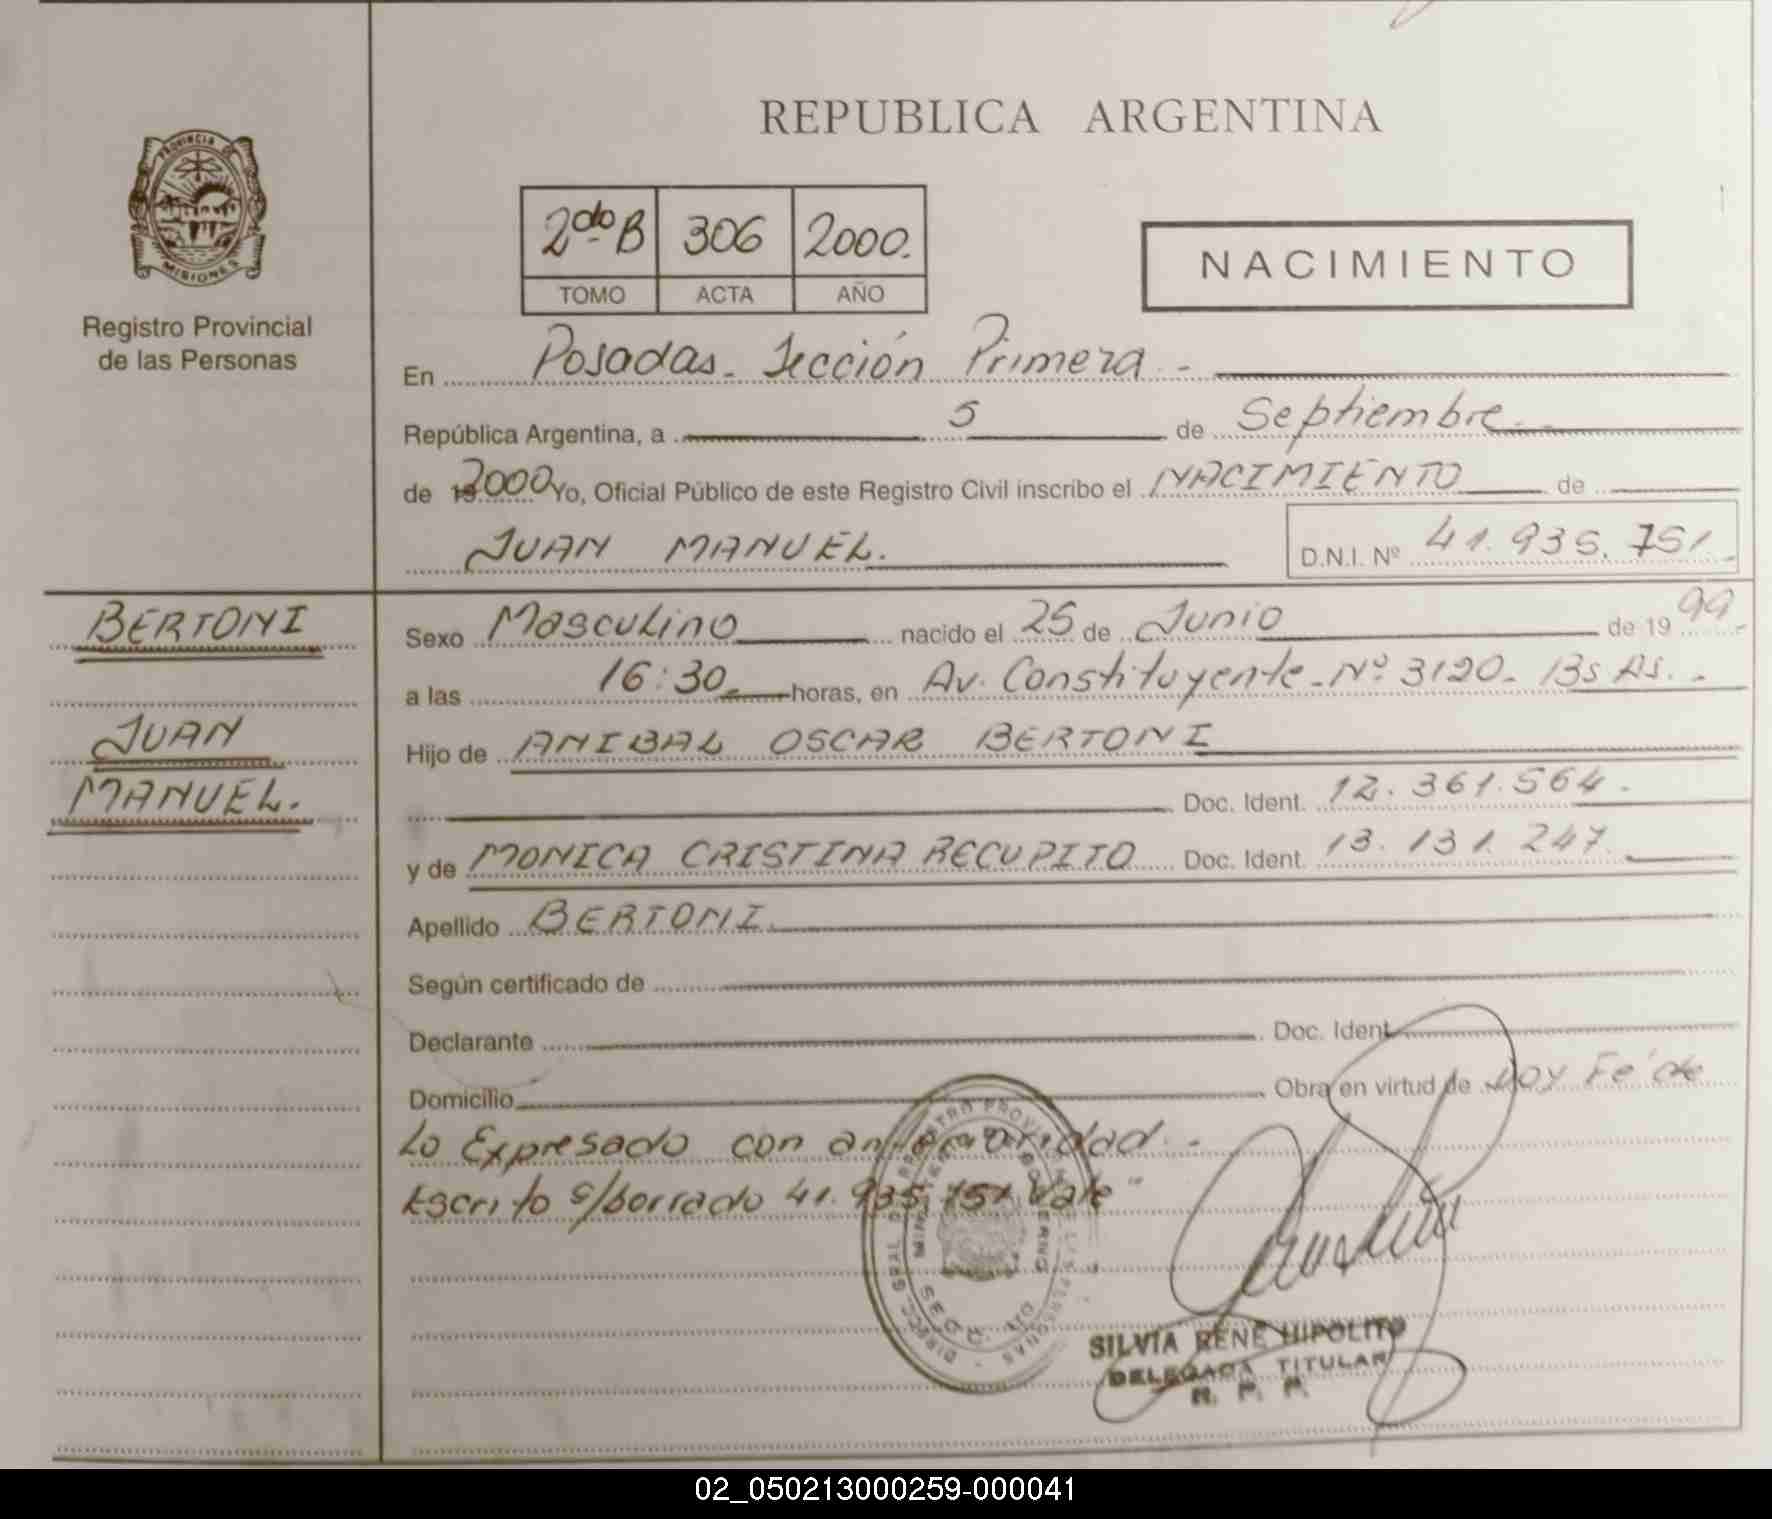 REPUBLICA ARGENTINA
PROVINCIA DE
MISIONES
Registro Provincial
de las Personas
2do B 306 2000.
TOMO ACTA AÑO
NACIMIENTO
En Posadas. Sección Primera -
República Argentina, a 5 de Septiembre
de 2000 Yo, Oficial Público de este Registro Civil inscribo el NACIMIENTO de
JUAN MANUEL. D.N.I. Nº 41.935.751.
BERTONI
JUAN
MANUEL.
Sexo Masculino nacido el 25 de Junio de 1999
a las 16:30 horas, en Av. Constituyente - Nº 3120 - Bs As. -
Hijo de ANIBAL OSCAR BERTONI
Doc. Ident. 12.361.564.
y de MONICA CRISTINA RECUPITO Doc. Ident. 13.131.247.
Apellido BERTONI.
Según certificado de
Declarante Doc. Ident.
Domicilio Obra en virtud de Doy Fé de
Lo Expresado con anterioridad. -
Escrito s/borrado 41.935.751 Vale"
SILVIA RENE HIPOLITO
DELEGADA TITULAR
R. P. P.
02_050213000259-000041